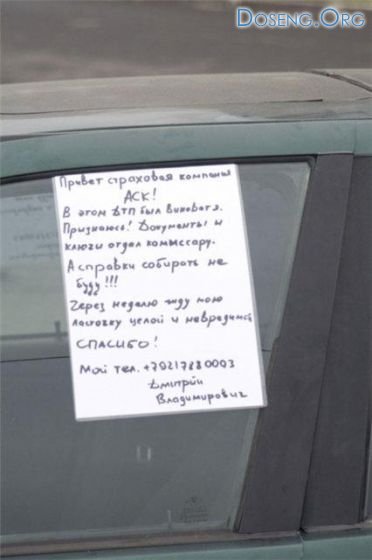 DOSENG.ORG
Привет страховая компания
АСК!
В этом ДТП был виноват я.
Признаюсь! Документы и
ключи отдал комиссару.
А справки собирать не
буду!!!
Через неделю жду мою
ласточку целой и невредимой
СПАСИБО!
Мой тел. +79217880003
Дмитрий
Владимирович